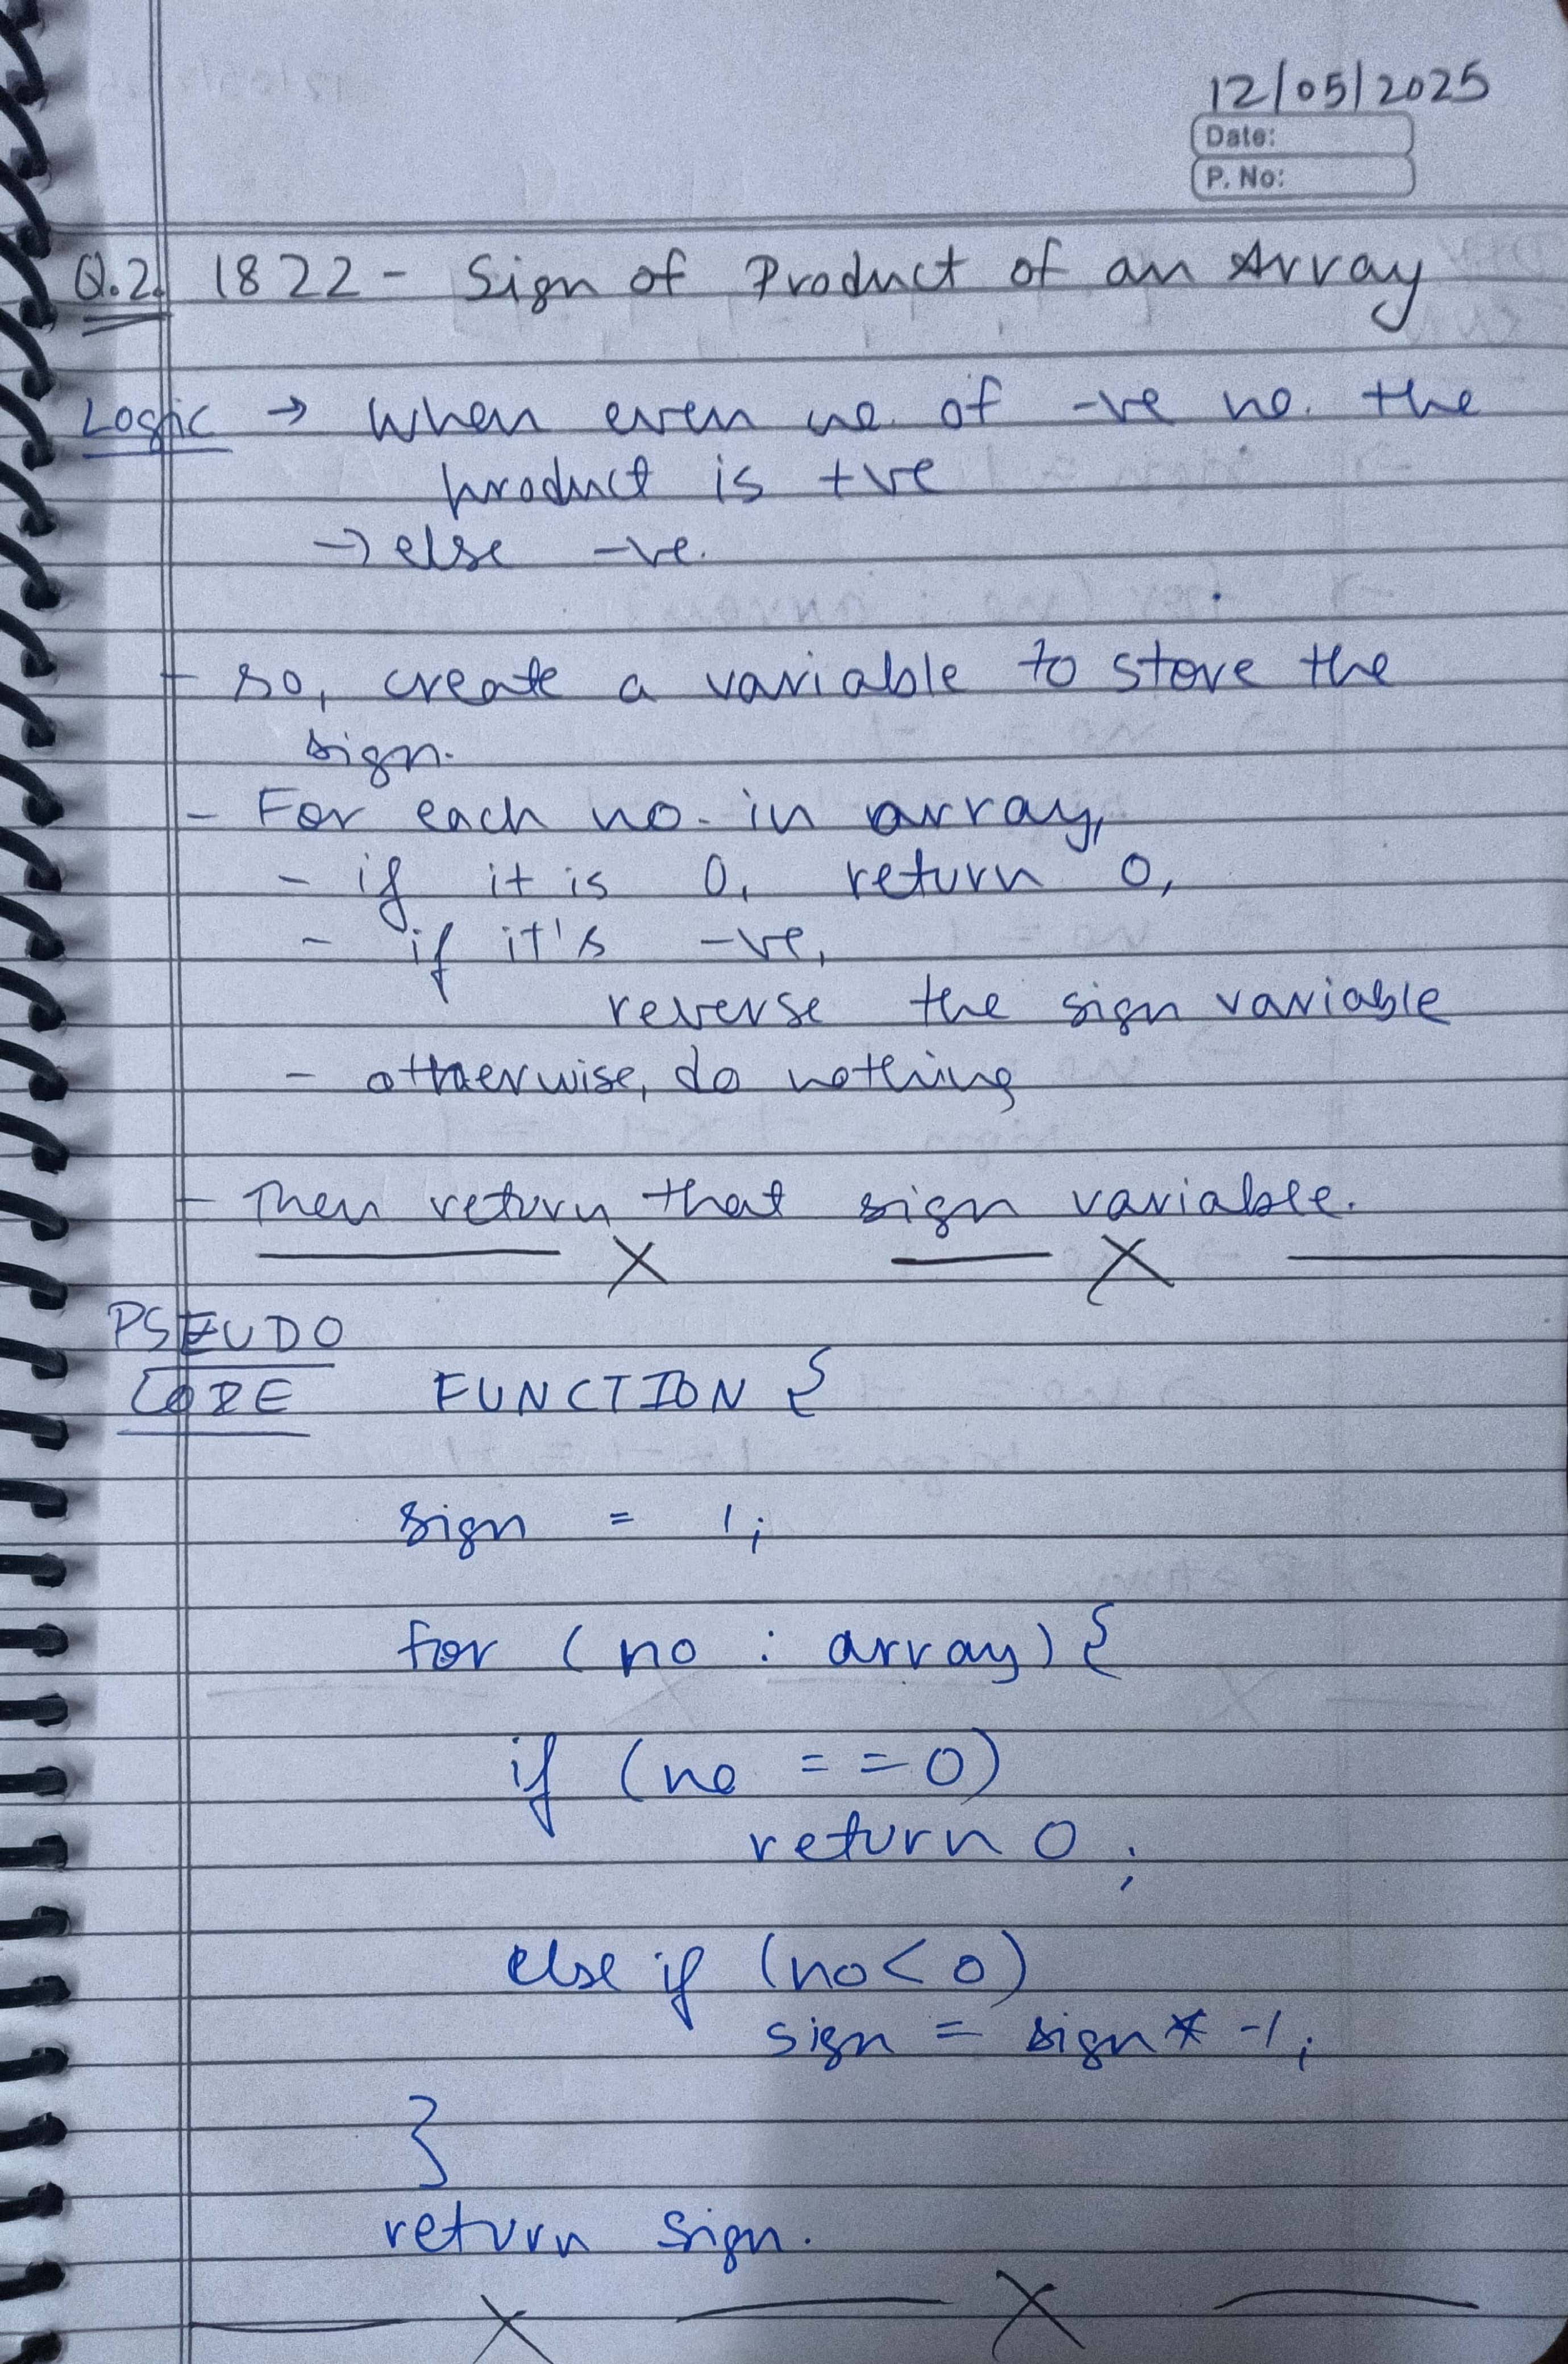 12/05/2025
Date:
P. No:
Q.2. 1822 - Sign of Product of an Array
Logic → When even no. of -ve no. the
product is +ve
→ else -ve.
- so, create a variable to store the
sign.
- For each no. in array,
- if it is 0, return 0,
- if it's -ve,
reverse the sign variable
- otherwise, do nothing
- Then return that sign variable.
X X
PSEUDO
CODE FUNCTION {
sign = 1;
for (no : array) {
if (no == 0)
return 0;
else if (no < 0)
sign = sign * -1;
}
return sign.
X X